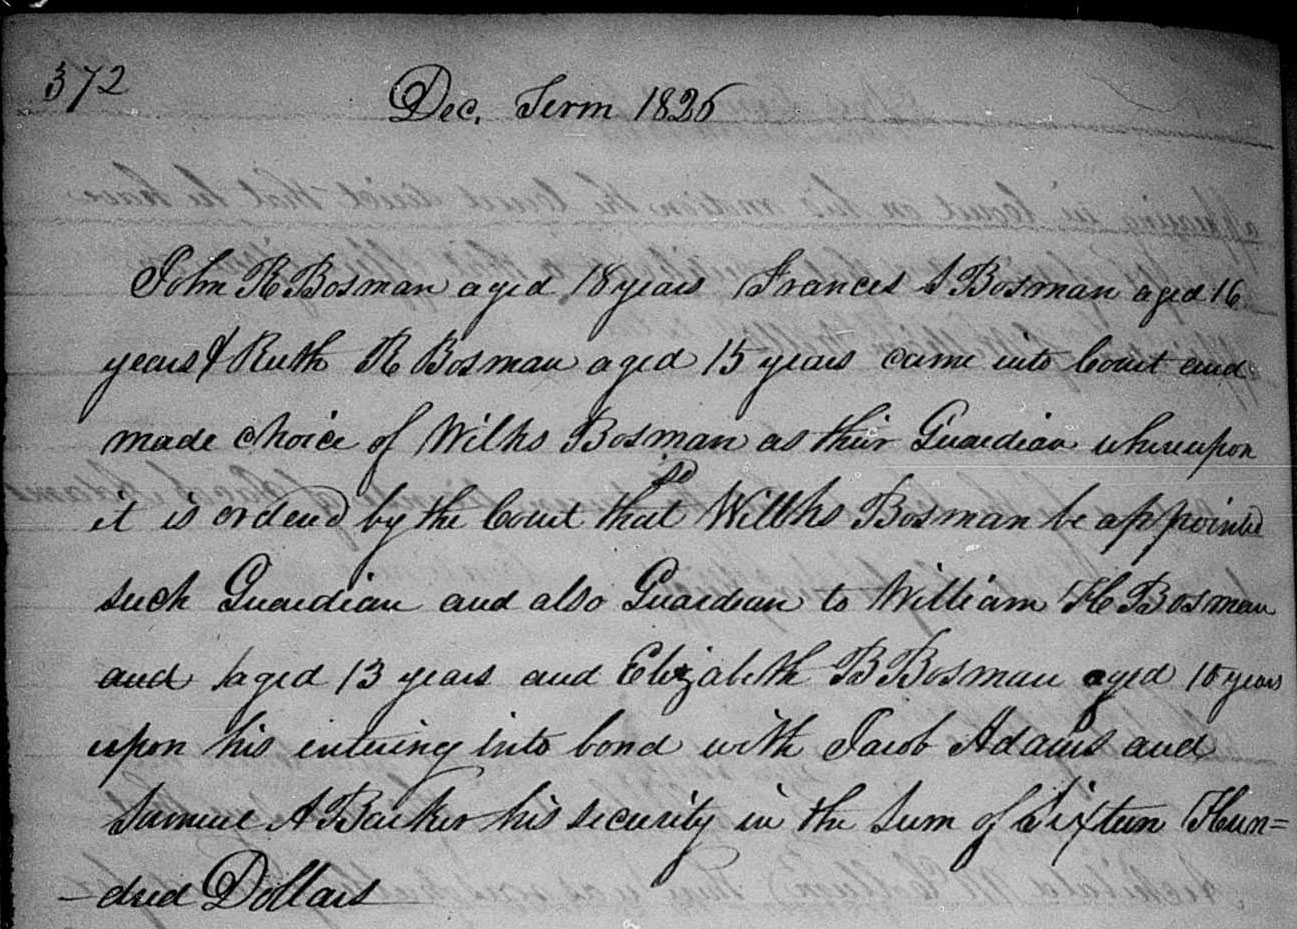 372
Dec. Term 1826
John R Bosman aged 18 years Frances S Bosman aged 16
years & Ruth R Bosman aged 15 years came into Court and
made choice of Wilks Bosman as their Guardian whereupon
so
it is ordered by the Court that Wilks Bosman be appointed
such Guardian and also Guardian to William H Bosman
and aged 13 years and Elizabeth B Bosman aged 10 years
upon his entering into bond with Jacob Adams and
Samuel A Barker his security in the Sum of Sixteen Hun=
dred Dollars